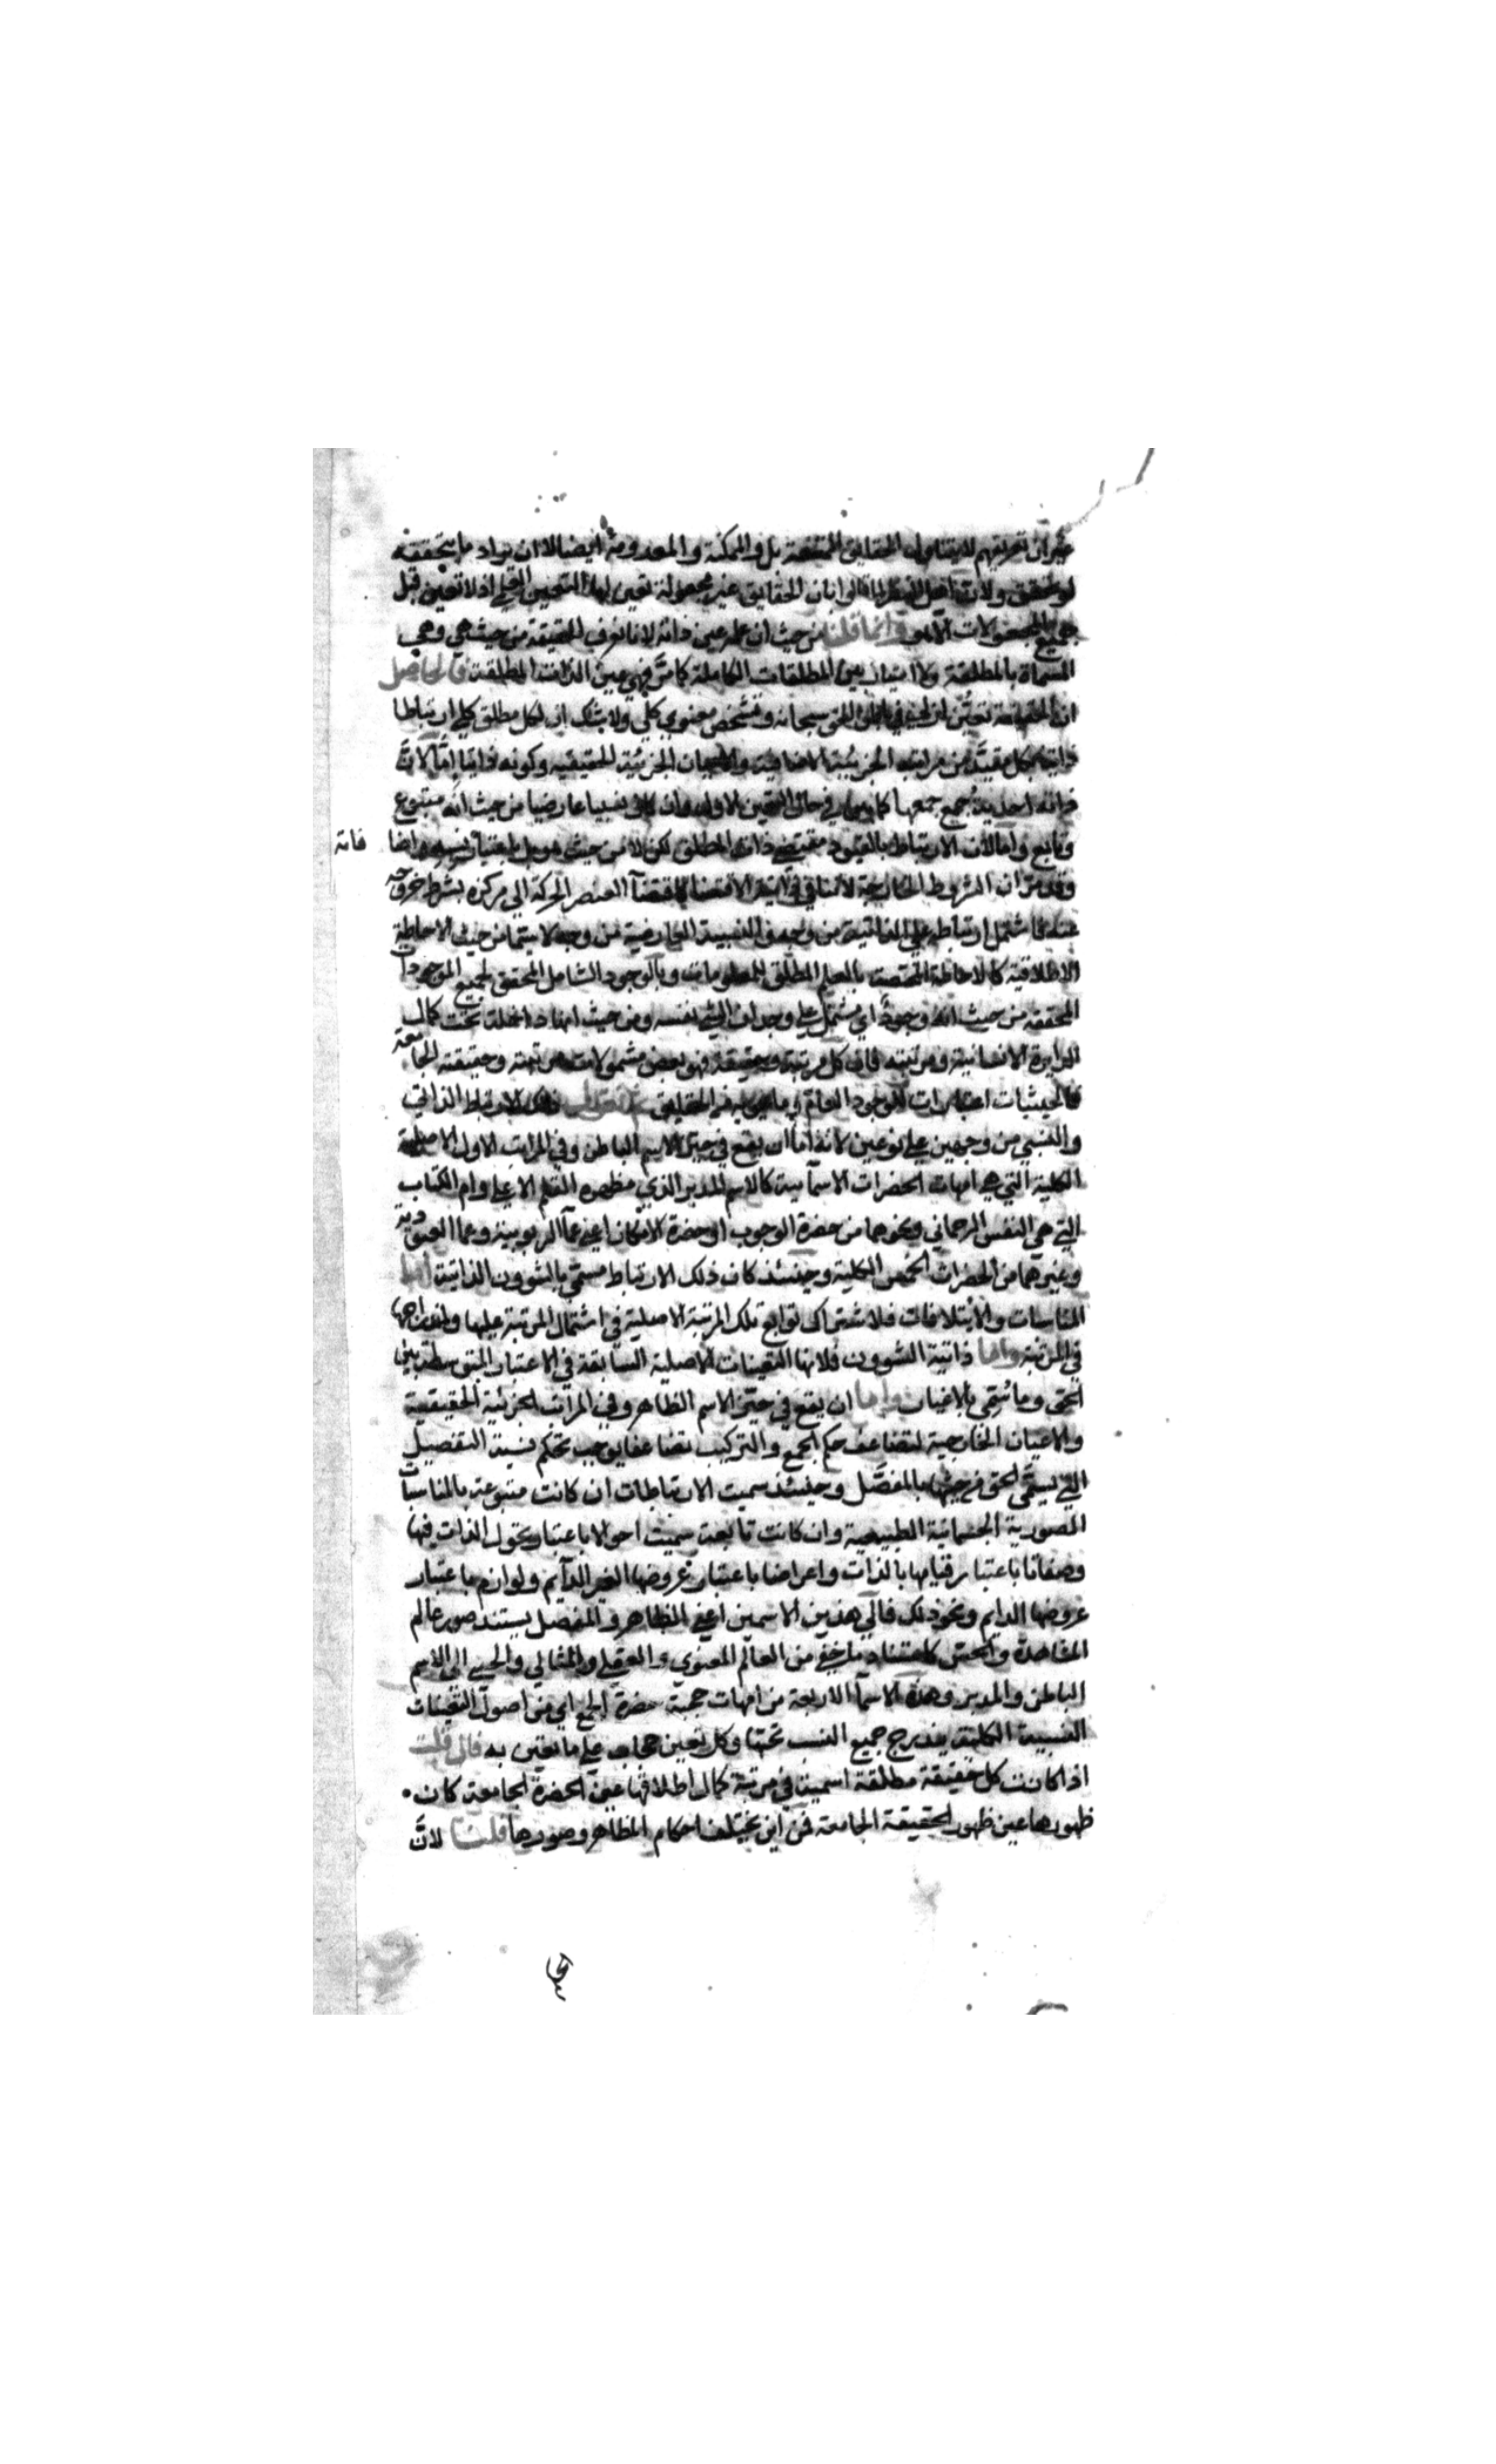 غير ان تعريفهم لا يتناول الحقايق الممتنعة بل والممكنة والمعدومة ايضا الا ان يراد ما يتحققه
لو تحقق ولان اهل النظر لما قالوا بان الحقايق غير مجعولة تعين لها التعين اذ لا تعين قبل
جميع المجعولات الا هو وانما قلنا من حيث ان علمه عين ذاته لانا نعرف الحقيقة من حيث هي وهي
المسماة بالمطلقة ولا امتياز بين المطلقات الكاملة كما مر فهي عين الذات المطلقة فالحاصل
ان الحقيقة تعين في الحق سبحانه وتشخص معنوي كلي ولا شك ان لكل مطلق كلي ارتباطا
ذاتيا بكل مقيد من مراتب الجزئية الاضافية والاعيان الجزئية الحقيقية وكونه ذاتيا اما لان
ذاته احدية جميع جمعها كما في حال التعين الاول وان كان نسبيا عارضيا من حيث انه متبوع
وتابع واما لان الارتباط بالقيود مقتضى ذات المطلق لكن لا من حيث هو بل باعتبار
فانه
وقد مر ان الشروط الخارجة لا تنافي الاقتضا كاقتضآ العنصر الحركة الي مركزه بشرط خروجه
عنه فاشتمل ارتباطه علي الذاتية من وجه والنسبية العارضية من وجه لا سيما من حيث الاحاطة
الاطلاقية كالاحاطة المختصة بالعلم المطلق للمعلومات وبالوجود الشامل المحقق لجميع الموجودات
المحققة من حيث انه وجود اي مشتمل علي وجدان الشي نفسه ومن حيث انها داخلة تحت كمال
الدايرة الانسانية ومرتبته فان كل مرتبة وحقيقة فهو بعض مشمولات مرتبته وحقيقته الجامعة
فالحيثيات اعتبارات للوجود العام وما من الحقايق ثم نقول ذلك الارتباط الذاتي
والنسبي من وجهين علي نوعين لانه اما ان يقع في حيز الاسم الباطن وفي المراتب الاول الاصلية
الكلية التي هي امهات الحضرات الاسمآئية كالاسم المدبر الذي مظهره القلم الاعلي وام الكتاب
التي هي النفس الرحماني ونحوهما من حضرة الوجوب او حضرة الامكان اعني عمآ الربوبية وعمآ العبودية
وغيرهما من الحضرات الخمس الكلية وحينئذ كان ذلك الارتباط مسمي بالشوون الذاتية اما
المناسبات والائتلافات فلاشتراك توابع تلك المرتبة الاصلية في اشتمال المرتبة عليها واندراجها
في المرتبة واما ذاتية الشوون فلانها التعينات الاصلية السابقة في الاعتبار المتوسطة بين
الحق وما سُمي بالاعيان واما ان يقع في حيز الاسم الظاهر وفي المراتب الجزئية الحقيقية
والاعيان الخارجية لتضاعف حكم الجمع والتركيب تضاعفا يوجب تحكم نسبة التفصيل
التي يسمَّي الحق من حيثها بالمفصَّل وحينئذ سميت الارتباطات ان كانت متبوعة بالمناسبات
الصورية الجسمانية الطبيعية وان كانت تابعة سميت احوالا باعتبار تحول الذات فيها
وصفاتا باعتبار قيامها بالذات واعراضا باعتبار عروضها الغير الدآيم ولوازم باعتبار
عروضها الدايم ونحو ذلك فالي هذين الاسمين اعني الظاهر والمفصل يستند صور عالم
المشاهدة والحس كاستناد ما خفي من العالم المعنوي والعقلي والمثالي والحسي الي الاسم
الباطن والمدبر وهذه الاسمآ الاربعة من امهات حجبة حضرة الجمع اي من اصول التعينات
النسبية الكلية يندرج جميع النسب تحتها وكل تعين حجاب علي ما تعين به فان قلت
اذا كانت كل حقيقة مطلقة اسمية في مرتبة كمال اطلاقها عين الحضرة الجامعة كان
ظهورها عين ظهور الحقيقة الجامعة فمن اين يختلف احكام المظاهر وصورها قلنا لانَّ